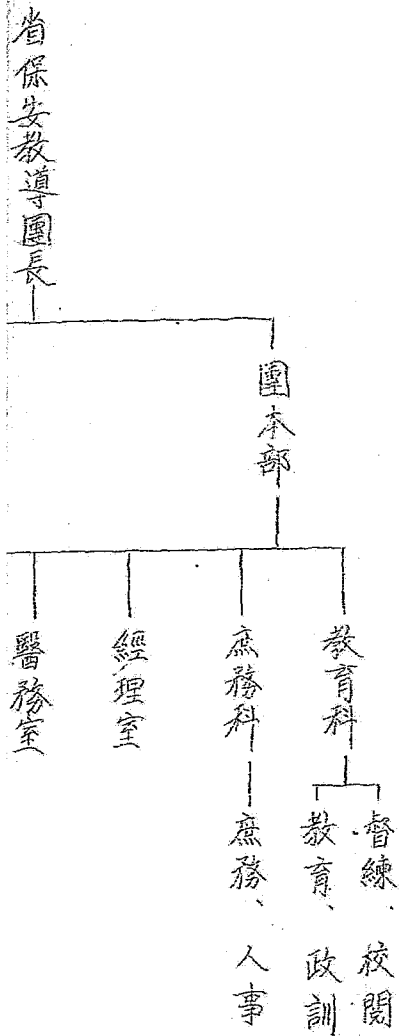 省保安教導團長
團本部
教育科
督練、校閱
教育、政訓
庶務科
庶務、人事
經理室
醫務室